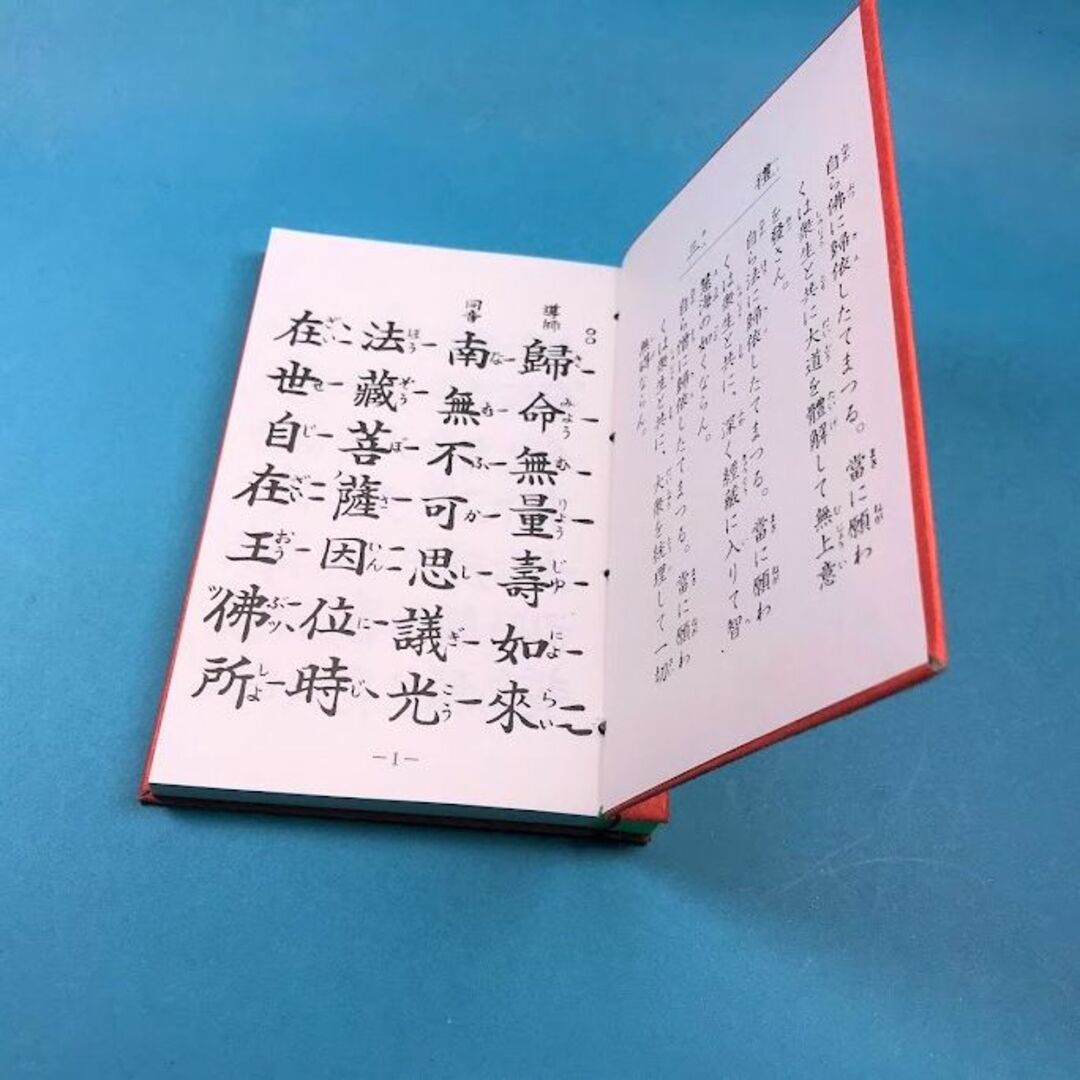 三禮
自ら佛に歸依したてまつる。當に願わ
くは衆生と共に大道を體解して無上意
を發さん。
自ら法に歸依したてまつる。當に願わ
くは衆生と共に、深く經蔵に入りて智
慧海の如くならん。
自ら僧に歸依したてまつる。當に願わ
くは衆生と共に、大衆を統理して一切
無碍ならん。
導師
歸命無量壽如來
同音
南無不可思議光
法藏菩薩因位時
在世自在王佛所
—1—